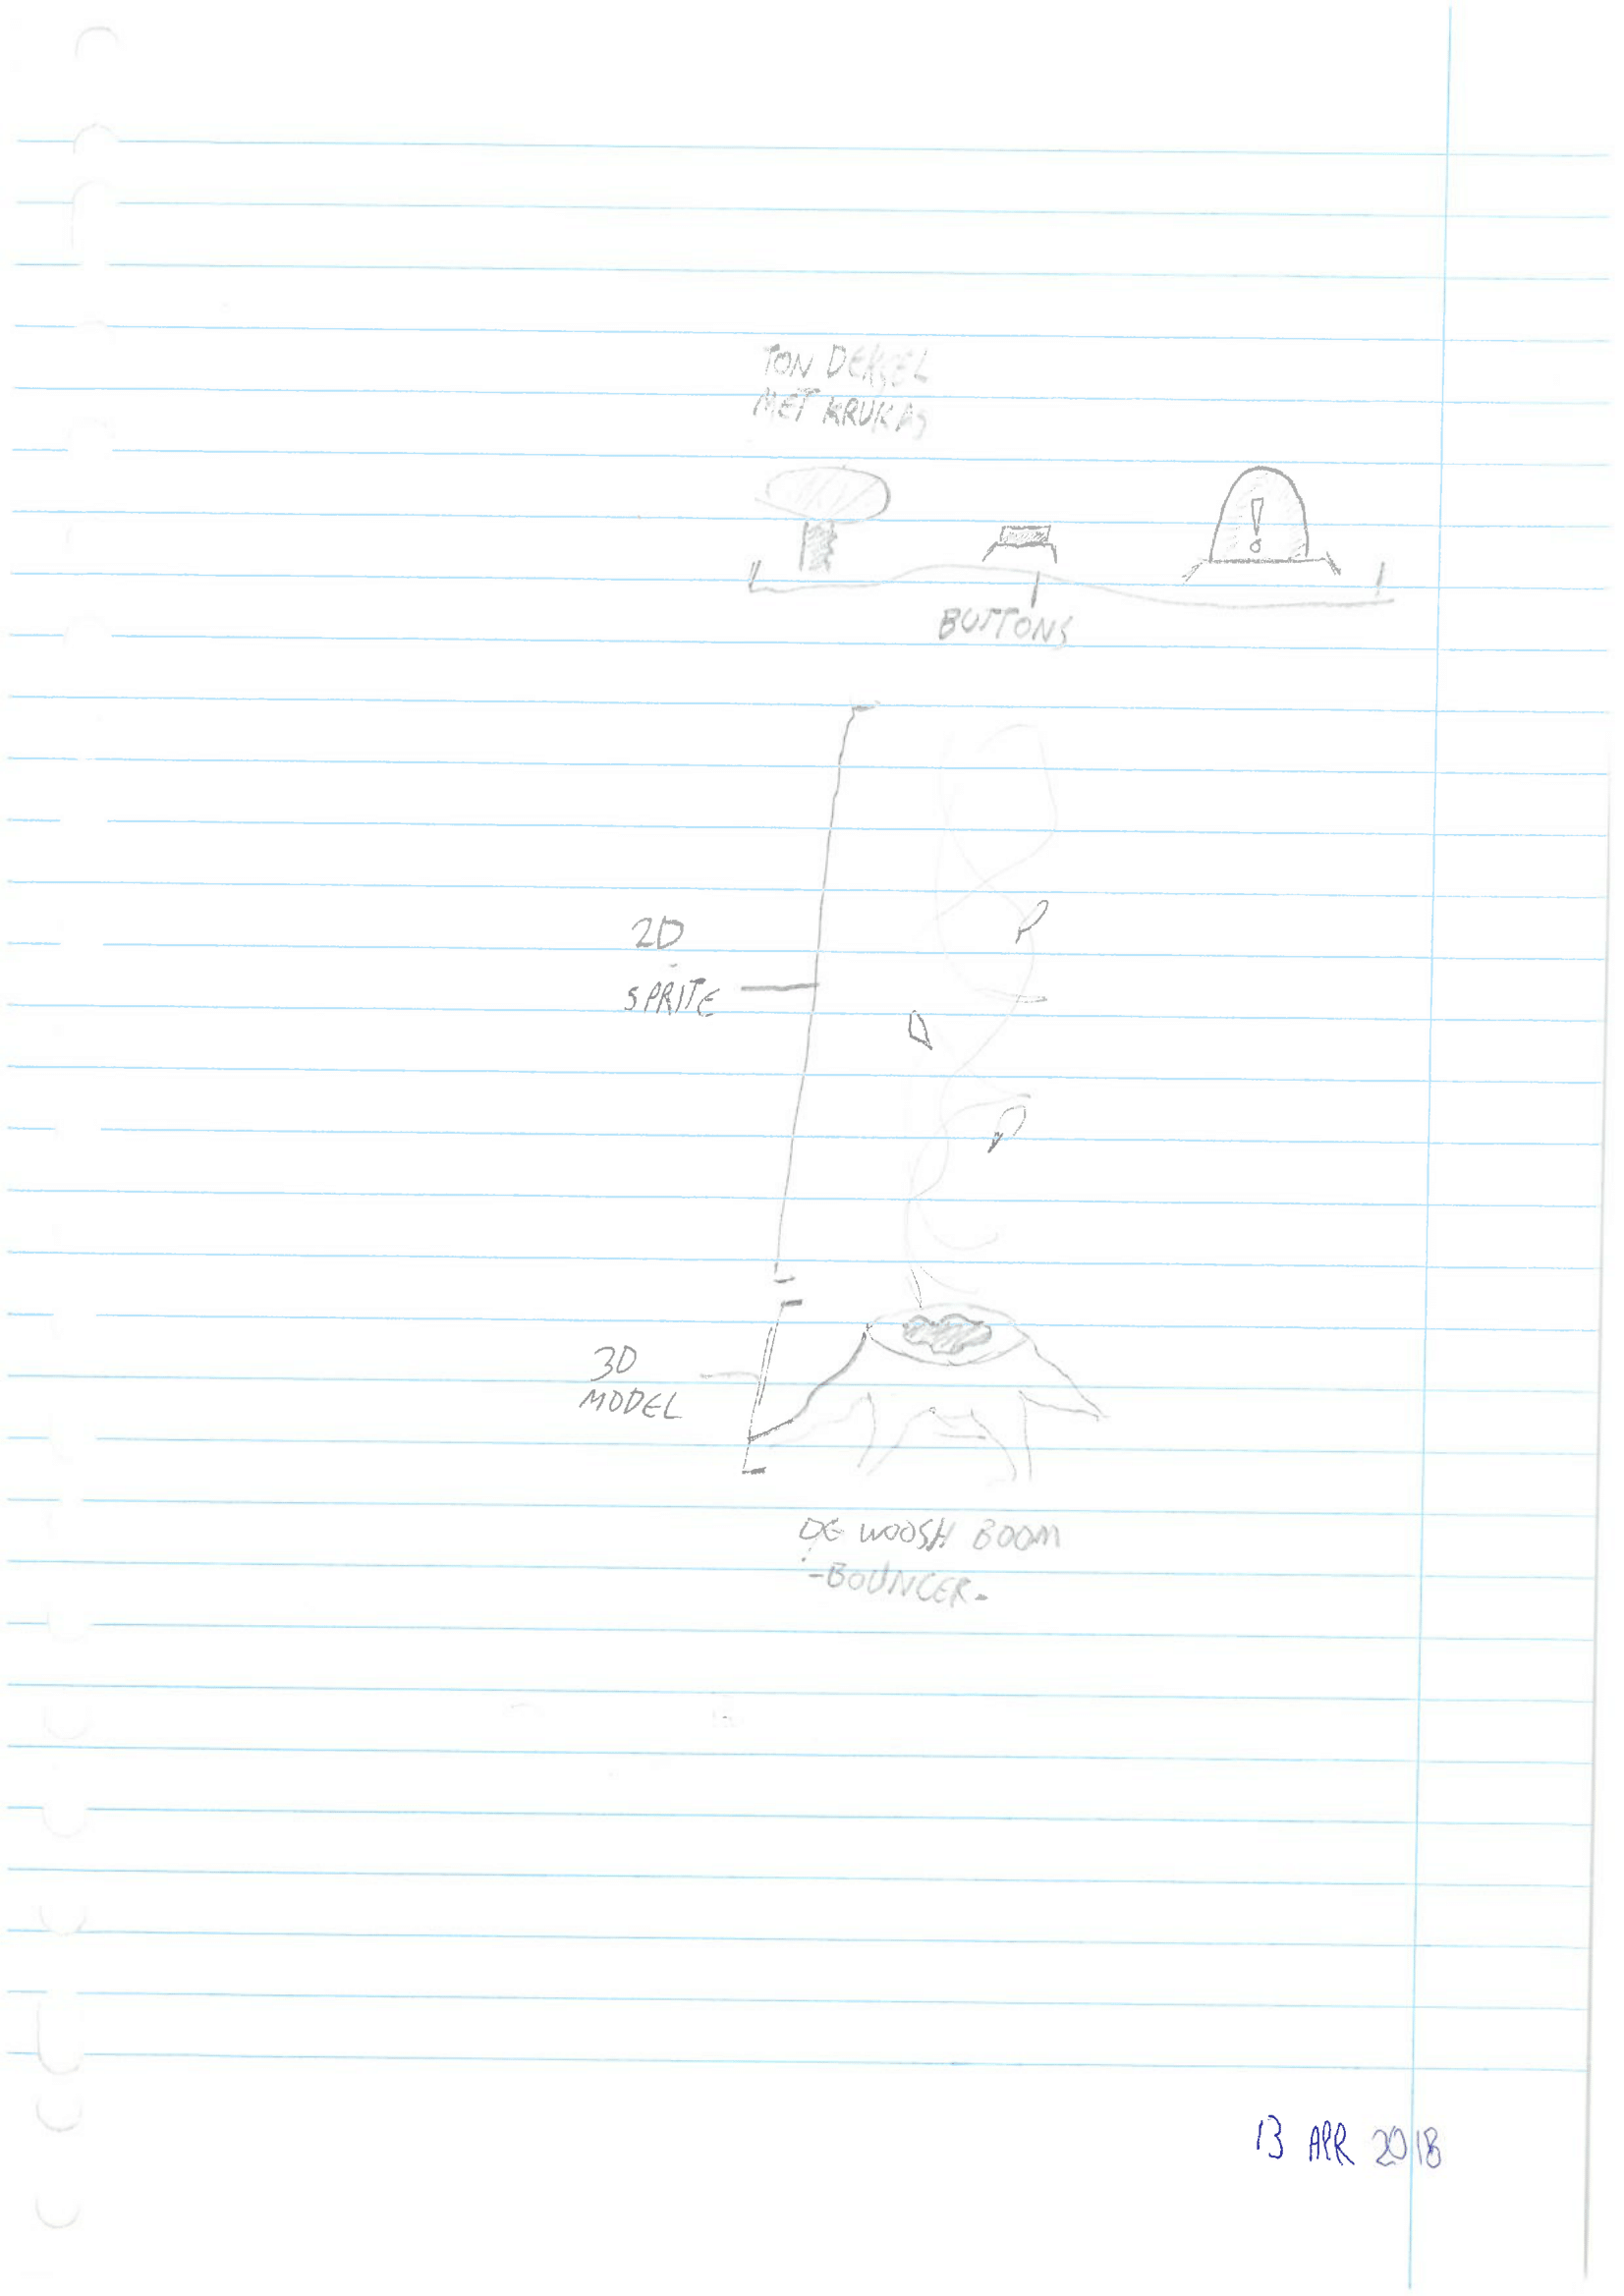 TON DEKSEL
MET KRUKAS
!
BUTTONS
2D
SPRITE
3D
MODEL
DE WOOSH BOOM
-BOUNCER-
13 APR 2018